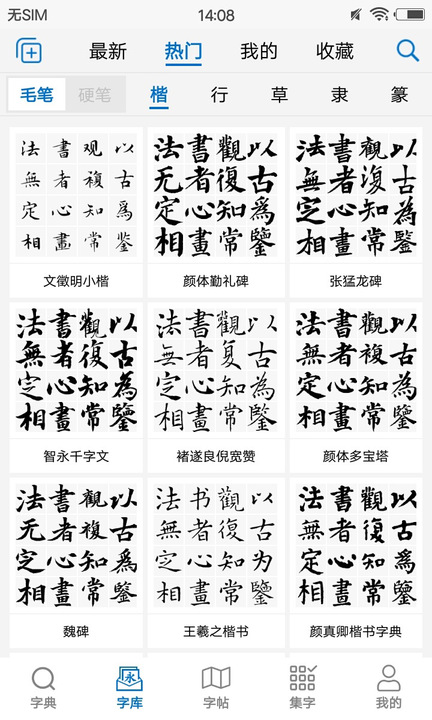 无SIM 14:08
最新 热门 我的 收藏
毛笔 硬笔 楷 行 草 隶 篆
法書观以
無者複古
定心知爲
相畫常鑒
文徵明小楷
法書觀以
无者復古
定心知爲
相畫常鑒
颜体勤礼碑
法書觀以
無者復古
定心知為
相畫常鑒
张猛龙碑
法書觀以
無者復古
定心知為
相畫常鑒
智永千字文
法書觀以
無者复古
定心知為
相畫常鑒
褚遂良倪宽赞
法書觀以
無者複古
定心知為
相畫常鑒
颜体多宝塔
法書觀以
无者複古
定心知爲
相畫常鑒
魏碑
法书觀以
無者復古
定心知为
相畫常鑒
王羲之楷书
法書觀以
無者復古
定心知爲
相畫常鑒
颜真卿楷书字典
永
字典 字库 字帖 集字 我的